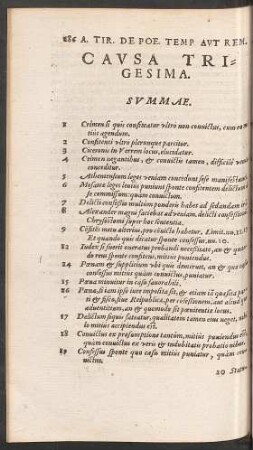 286 A. TIR. DE POE. TEMP AVT REM.
CAVSA TRI-
GESIMA.
SVMMAE.
1 Crimen si quis confiteatur vltro non conuictus, cum eo mi
tius agendum.
2 Confitenti vltro plerunque parcitur.
3 Ciceronis in Verrem locus, elucidatur.
4 Crimen negantibus, & conuictis tamen, difficilè venia
conceditur.
5 Atheniensium leges veniam concedunt sese manifestant.
6 Mosaica leges leuius puniunt sponte confitentem delictum à
se commissum: quàm conuictum.
7 Delicti confessio multum ponderis habet ad sedandam
8 Alexander magus sacrobat ad veniam, delicti
Chrysostomi super hac sententia.
9 Cessio meu alterius, pro conuicto habetur, Limit. nu.
Et quando quis dicatur sponte confessus. nu. 10.
12 Iudex si fuerit moratus procedi necessitate, an
do reus sponte confitens, mitius puniendus.
14 Pœnam & supplicium vbi quis timeriem, an & quo
confessus mitius quàm conuictus, puniatur.
15 Pœna minuitur in casu fauorabili.
16 Pœna, si tam ipsi iure imposita sit, & etiam si
ti & fisco, siue Reipublicæ, per confessionem, aut aliud
aduentitium, an & quomodo sit parcitentie locus.
17 Delictum siquis fateatur, qualitatem tamen eius neget,
lo mitius accipiendum est.
18 Conuictus ex præsumptione tantùm, mitius puniendus
quàm conuictus ex veris & indubitatis probationibus.
19 Confessus sponte quo casu mitius puniatur, quàm
uictus.
20